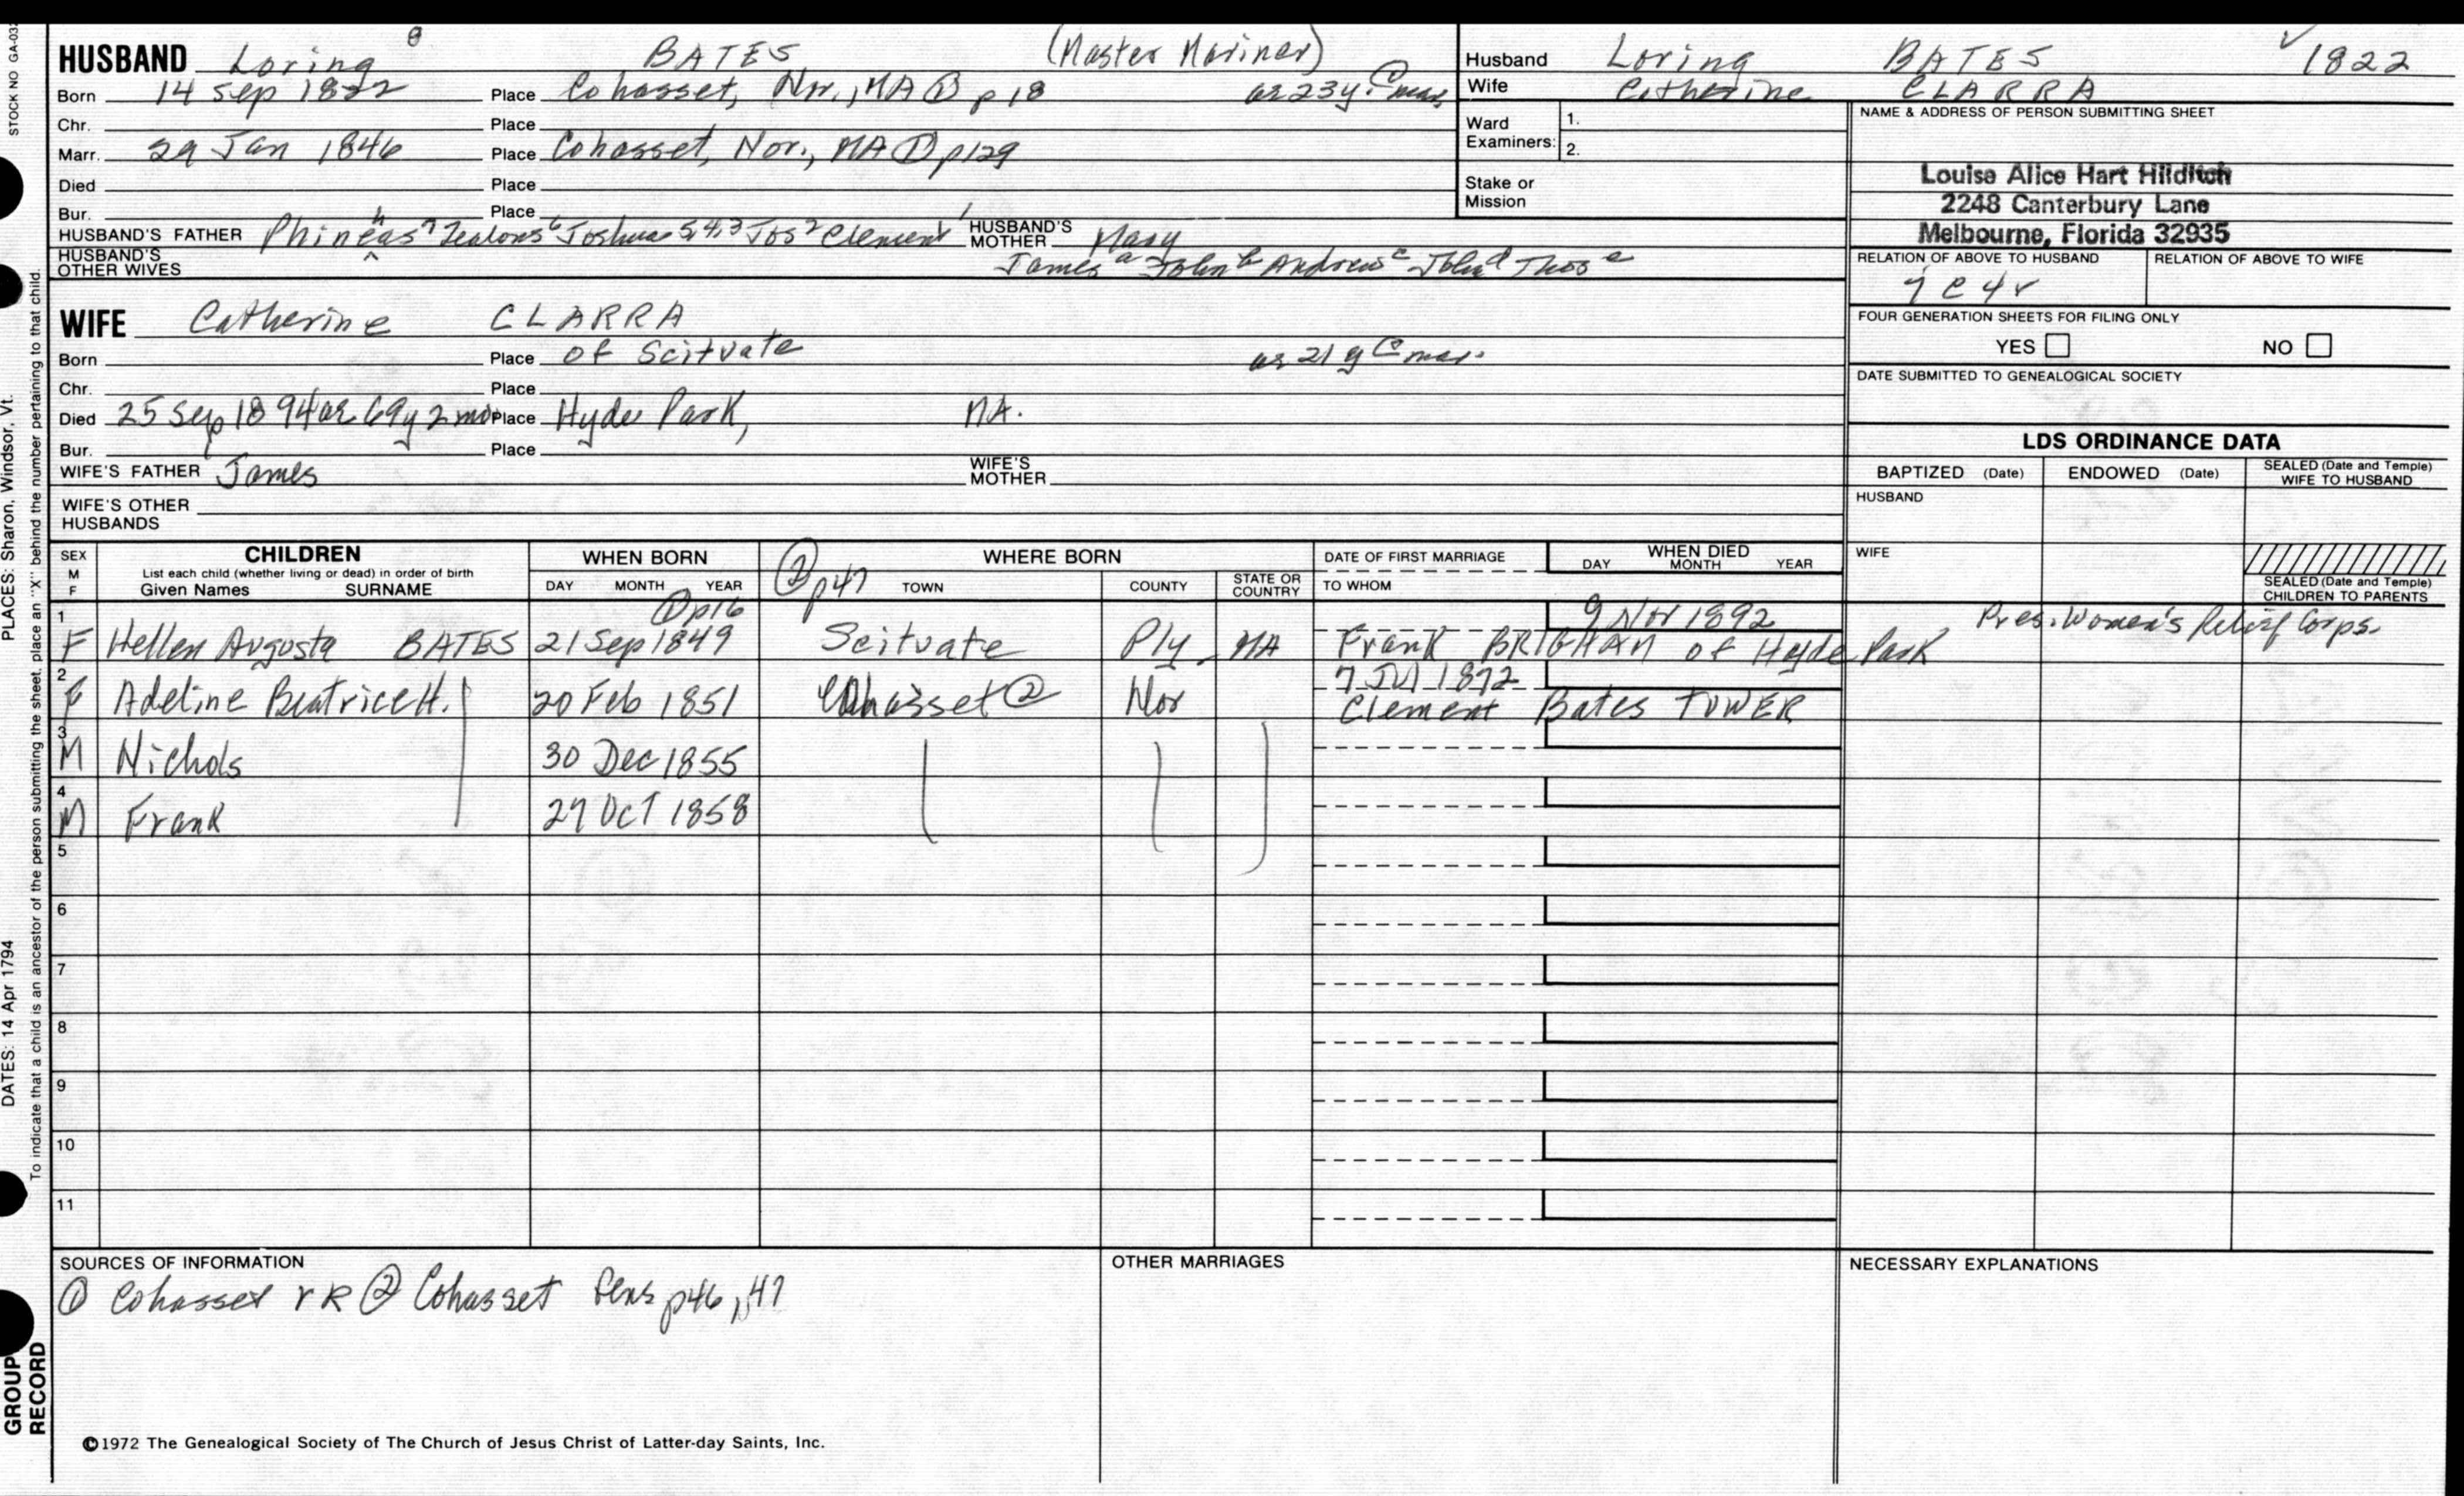 STOCK NO GA-03
HUSBAND Loring 8 BATES (Master Mariner)
Born 14 Sep 1822 Place Cohasset, Nor., MA ① p 18 ae 23y @ mar.
Chr. Place
Marr. 29 Jan 1846 Place Cohasset, Nor., MA ① p129
Died Place
Bur. Place
HUSBAND'S FATHER Phinehas 7 Zealous 6 Joshua 5,4,3 Jos 2 Clement 1 HUSBAND'S MOTHER Mary
HUSBAND'S OTHER WIVES James a John b Andrew c John d Thos e
Husband Loring BATES ✓ 1822
Wife Catherine CLARRA
Ward Examiners: 1.
2.
Stake or Mission
NAME & ADDRESS OF PERSON SUBMITTING SHEET
Louise Alice Hart Hilditch
2248 Canterbury Lane
Melbourne, Florida 32935
RELATION OF ABOVE TO HUSBAND RELATION OF ABOVE TO WIFE
FOUR GENERATION SHEETS FOR FILING ONLY
YES NO
DATE SUBMITTED TO GENEALOGICAL SOCIETY
WIFE Catherine CLARRA
Born Place of Scituate ae 21 y @ mar.
Chr. Place
Died 25 Sep 1894 ae 69y 2 mo Place Hyde Park, MA.
Bur. Place
WIFE'S FATHER James WIFE'S MOTHER
WIFE'S OTHER HUSBANDS
LDS ORDINANCE DATA
BAPTIZED (Date) ENDOWED (Date) SEALED (Date and Temple) WIFE TO HUSBAND
HUSBAND
WIFE
SEALED (Date and Temple) CHILDREN TO PARENTS
SEX M F CHILDREN WHEN BORN WHERE BORN DATE OF FIRST MARRIAGE WHEN DIED
List each child (whether living or dead) in order of birth DAY MONTH YEAR ② p47 TOWN COUNTY STATE OR COUNTRY TO WHOM DAY MONTH YEAR
Given Names SURNAME
① p16 9 Nov 1892 Pres. Women's Relief Corps.
1 F Hellen Augusta BATES 21 Sep 1849 Scituate Ply. MA Frank BRIGHAM of Hyde Park
7 Jul 1872
2 F Adeline Beatrice H. 20 Feb 1851 Cohasset ② Nor Clement Bates TOWER
3 M Nichols 30 Dec 1855
4 M Frank 27 Oct 1858
5
6
7
8
9
10
11
SOURCES OF INFORMATION OTHER MARRIAGES NECESSARY EXPLANATIONS
① Cohasset VR ② Cohasset Gens p46, 47
©1972 The Genealogical Society of The Church of Jesus Christ of Latter-day Saints, Inc.
PLACES: Sharon, Windsor, Vt.
DATES: 14 Apr 1794
To indicate that a child is an ancestor of the person submitting the sheet, place an "X" behind the number pertaining to that child.
GROUP RECORD